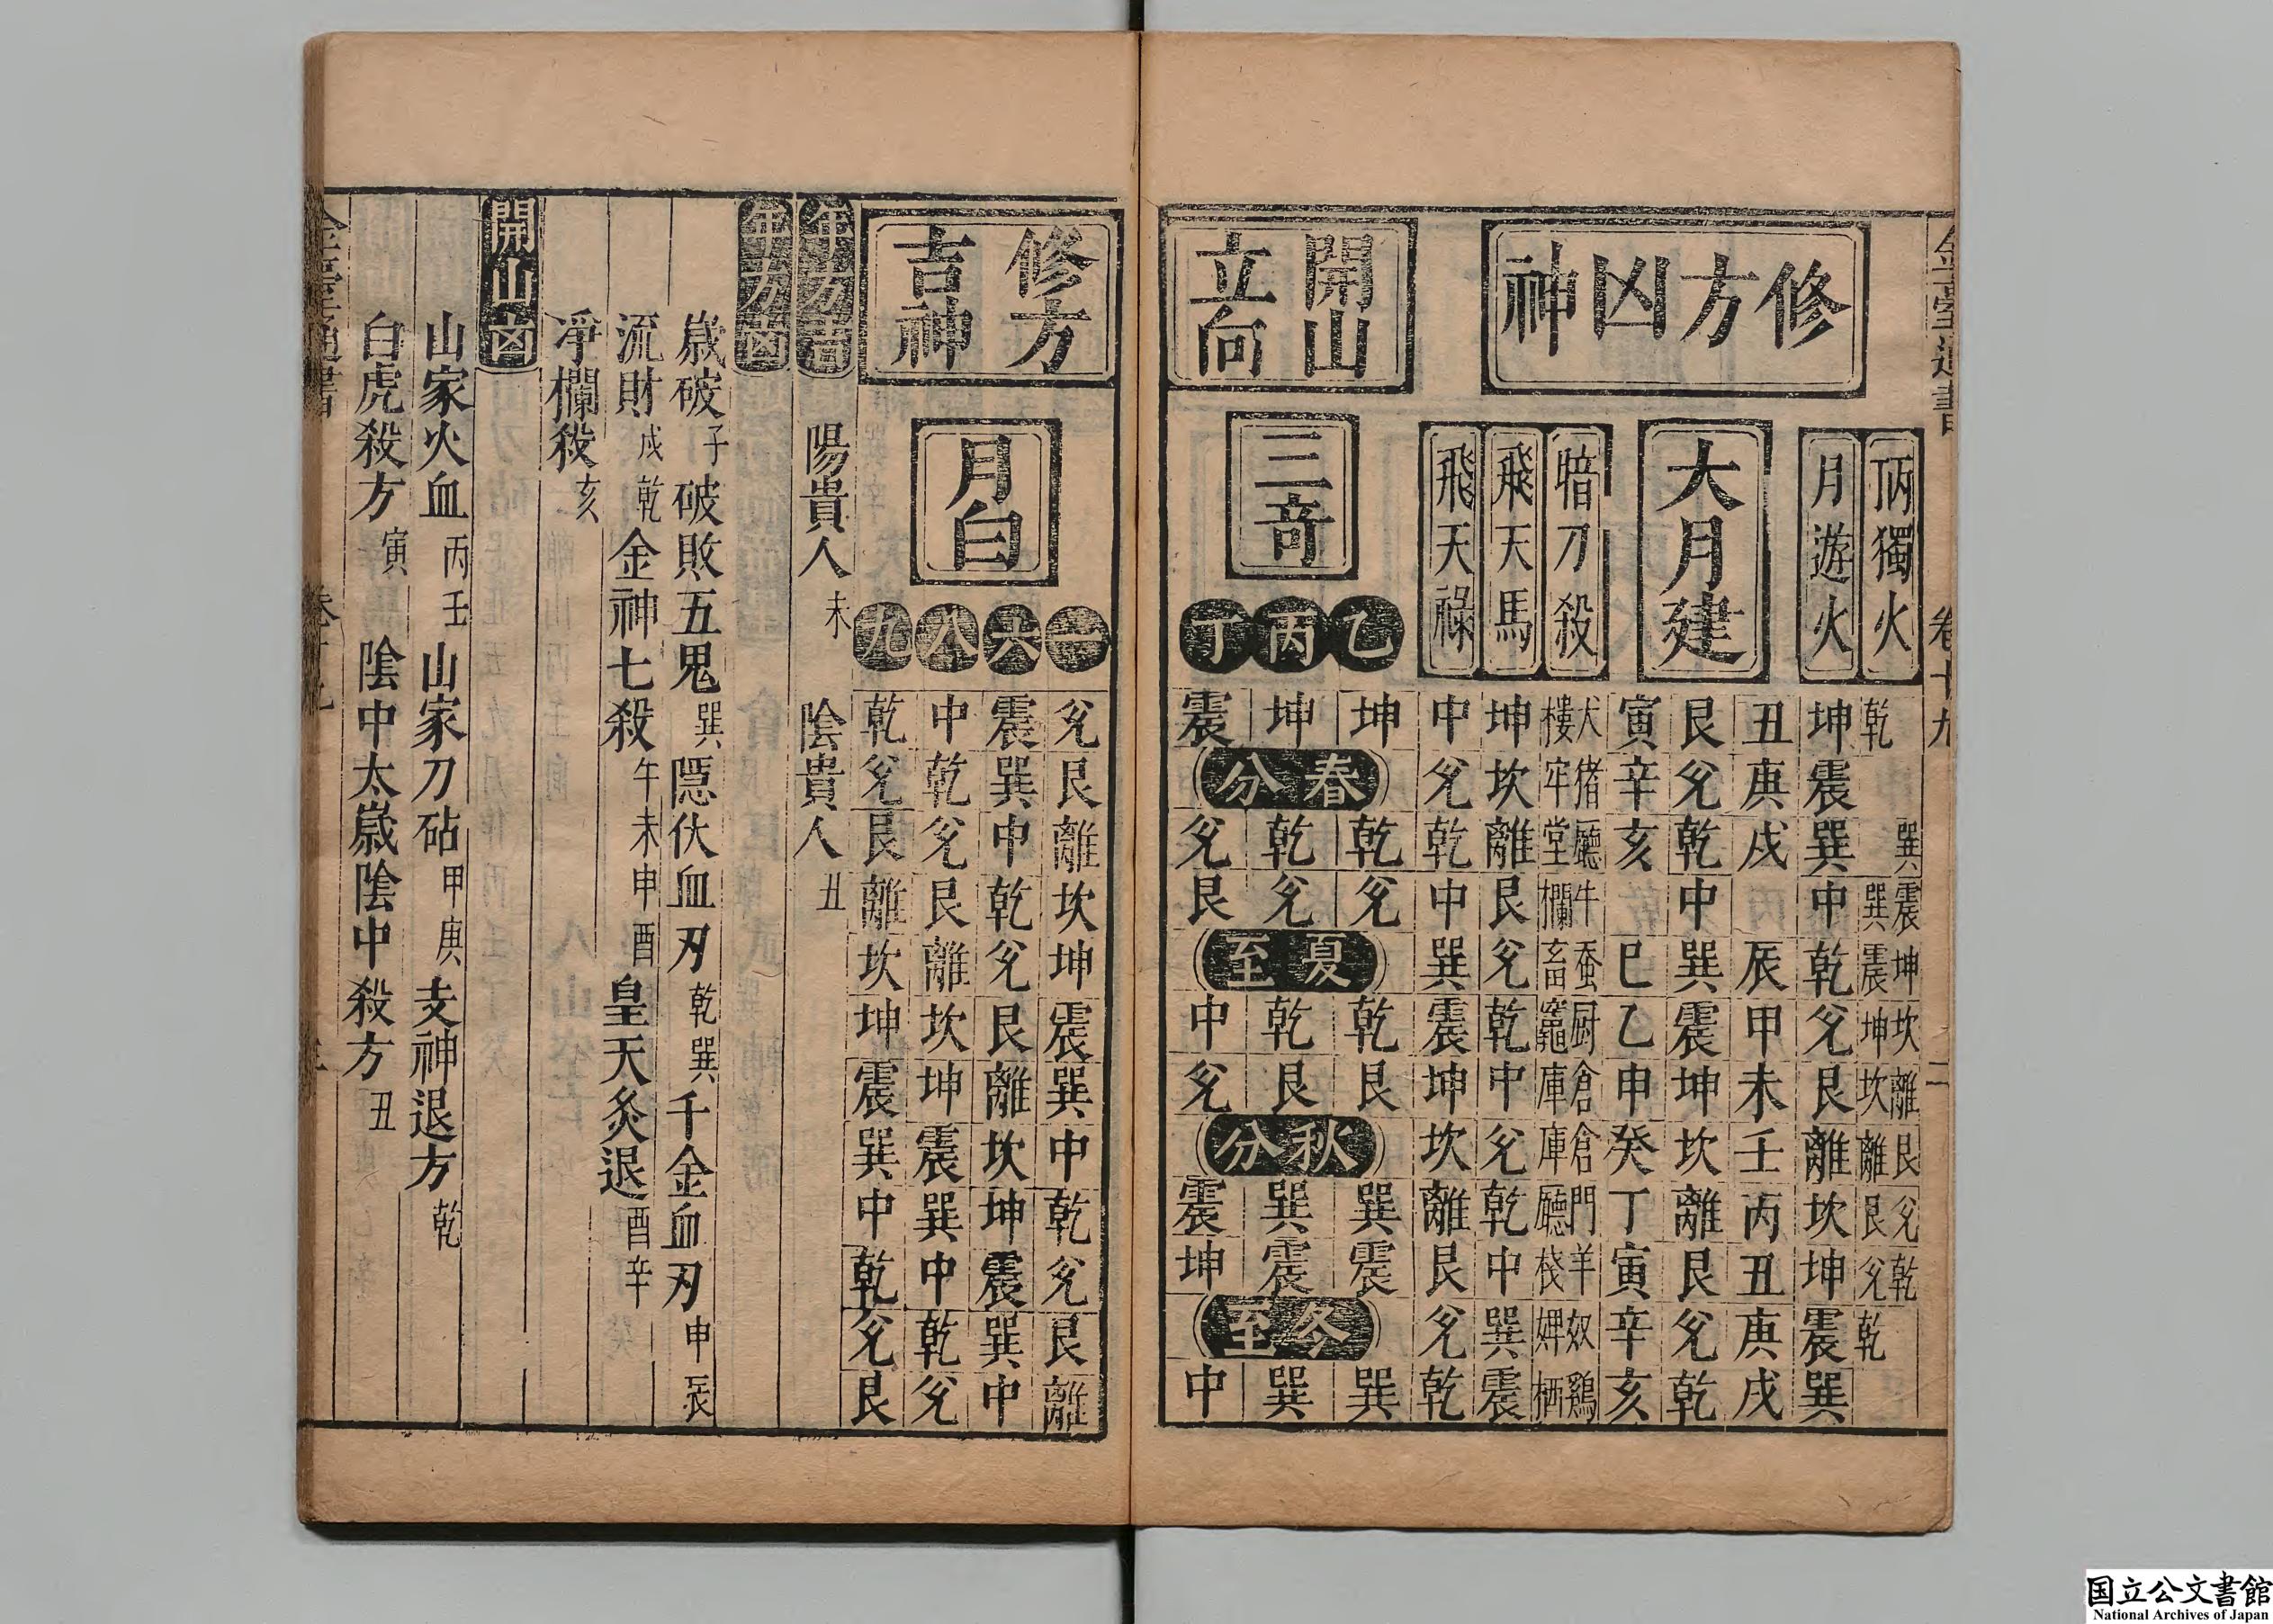 卷十九
二
修方凶神
丙獨火
乾 巽 震巽 坤震 坎坤 離坎 艮離 兊艮 乾兊 乾
月遊火
坤震巽中乾兊艮離坎坤震巽
大月建
丑庚戌 辰甲未壬丙丑庚戌
艮兊乾中巽震坤坎離艮兊乾
寅辛亥 巳乙申癸丁寅辛亥
暗刀殺
犬樓 猪牢 廳堂 牛欄 蚕畜 厨竈 倉庫 倉庫 門廳 羊棧 奴婢 鷄栖
飛天馬
坤坎離艮兊乾中兊乾中巽震
飛天祿
中兊乾中巽震坤坎離艮兊乾
開山
立向
三奇
乙
坤 乾兊 乾艮 巽震 巽
丙
坤 乾兊 乾艮 巽震 巽
丁
震 兊艮 中兊 震坤 中
春分
夏至
秋分
冬至
修方
吉神
月白
一
兊艮離坎坤震巽中乾兊艮離
六
震巽中乾兊艮離坎坤震巽中
八
中乾兊艮離坎坤震巽中乾兊
九
乾兊艮離坎坤震巽中乾兊艮
年方吉
陽貴人 未 陰貴人 丑
年方凶
歲破 子 破敗五鬼 巽 隱伏血刃 乾巽 千金血刃 申辰
流財 戌乾 金神七殺 午未申酉 皇天炙退 酉辛
凈欄殺 亥
開山凶
山家火血 丙壬 山家刀砧 甲庚 支神退方 乾
白虎殺方 寅 陰中太歲陰中殺方 丑
国立公文書館
National Archives of Japan